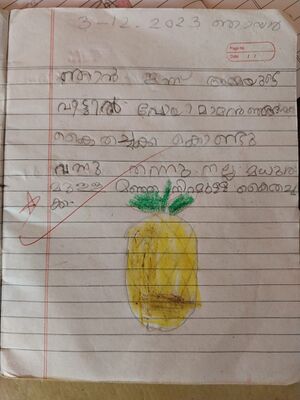 3-12.2023 ഞായർ
Page No.
Date
ഞാൻ ഇന്ന് അമ്മയുടെ
വീട്ടിൽ പോയി മാമൻ ഞങ്ങൾക്ക്
കൈതച്ചക്ക കൊണ്ടു
വന്നു തന്നു. നല്ല മധുര
മുള്ള മഞ്ഞ നിറമുള്ള കൈതച്ച
ക്ക.